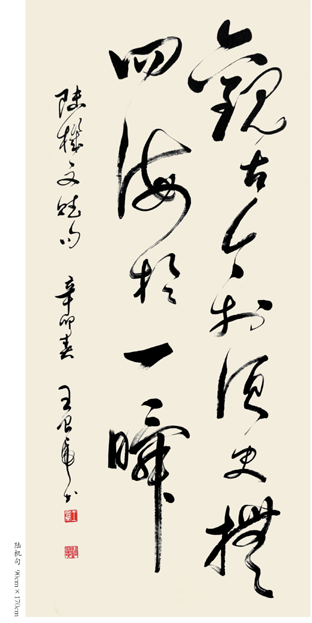 觀古今於須臾撫
四海於一瞬
陸機文賦句 辛卯春 王
陆机句 90cm×170cm